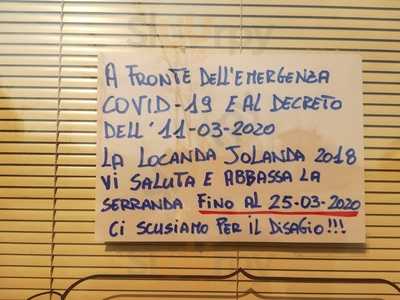 A FRONTE DELL'EMERGENZA
COVID-19 E AL DECRETO
DELL'11-03-2020
LA LOCANDA JOLANDA 2018
VI SALUTA E ABBASSA LA
SERRANDA FINO AL 25-03-2020
CI SCUSIAMO PER IL DISAGIO!!!